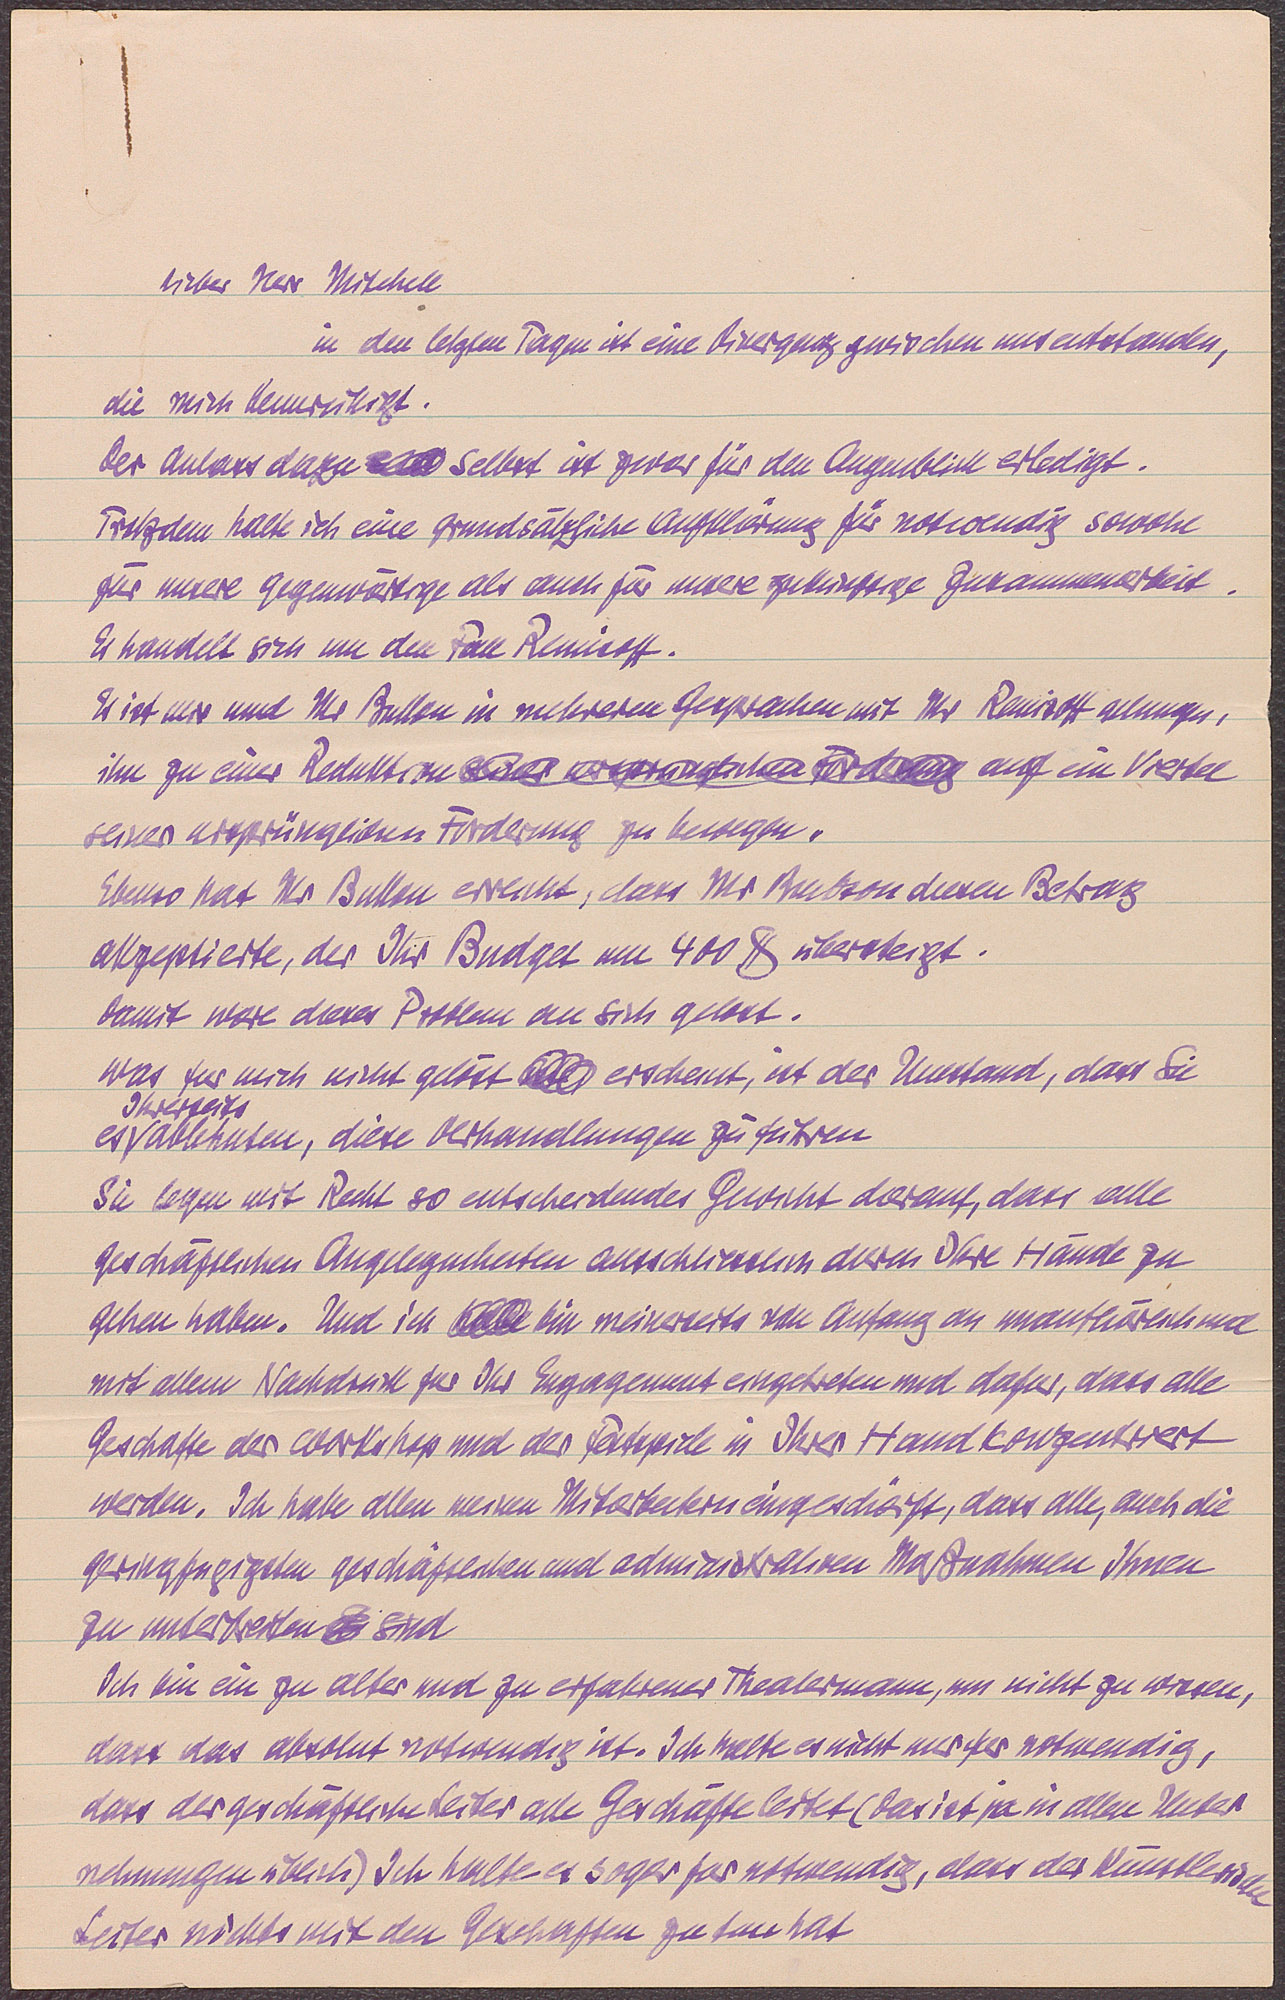 Lieber Herr Mitchell
in den letzten Tagen ist eine Divergenz zwischen uns entstanden,
die mich beunruhigt.
Der Anlass dazu selbst ist zwar für den Augenblick erledigt.
Trotzdem halte ich eine grundsätzliche Aufklärung für notwendig sowohl
für unsere gegenwärtige als auch für unsere zukünftige Zusammenarbeit.
Es handelt sich um den Fall Remisoff.
Es ist mir und Mr Bullon in mehreren Gesprachen mit Mr Remisoff gelungen,
ihn zu einer Reduktion seiner ursprünglichen Forderung auf ein Viertel
seiner ursprünglichen Forderung zu bewegen.
Ebenso hat Mr Bullon erreicht, dass Mr diesen Betrag
akzeptierte, der Ihr Budget um 400 $ übersteigt.
Damit wäre dieses Problem an sich gelöst.
Was für mich nicht gelöst erscheint, ist der Umstand, dass Sie
Ihrerseits
es ablehnten, diese Verhandlungen zu führen
Sie legen mit Recht so entscheidendes Gewicht darauf, dass alle
geschäftlichen Angelegenheiten ausschliesslich durch Ihre Hände zu
gehen haben. Und ich bin meinerseits von Anfang an unaufhörlich und
mit allem Nachdruck für Ihr Engagement eingetreten und dafür, dass alle
Geschäfte der Workshop und der Festspiele in Ihrer Hand konzentriert
werden. Ich habe allen meinen Mitarbeitern eingeschärft, dass alle, auch die
geringfügigsten geschäftlichen und administrativen Maßnahmen Ihnen
zu unterbreiten sind
Ich bin ein zu alter und zu erfahrener Theatermann, um nicht zu wissen,
dass das absolut notwendig ist. Ich halte es nicht nur für notwendig,
dass der geschäftliche Leiter alle Geschäfte leitet (das ist ja in allen Unter
nehmungen üblich) Ich halte es sogar für notwendig, dass der künstlerische
Leiter nichts mit den Geschäften zu tun hat